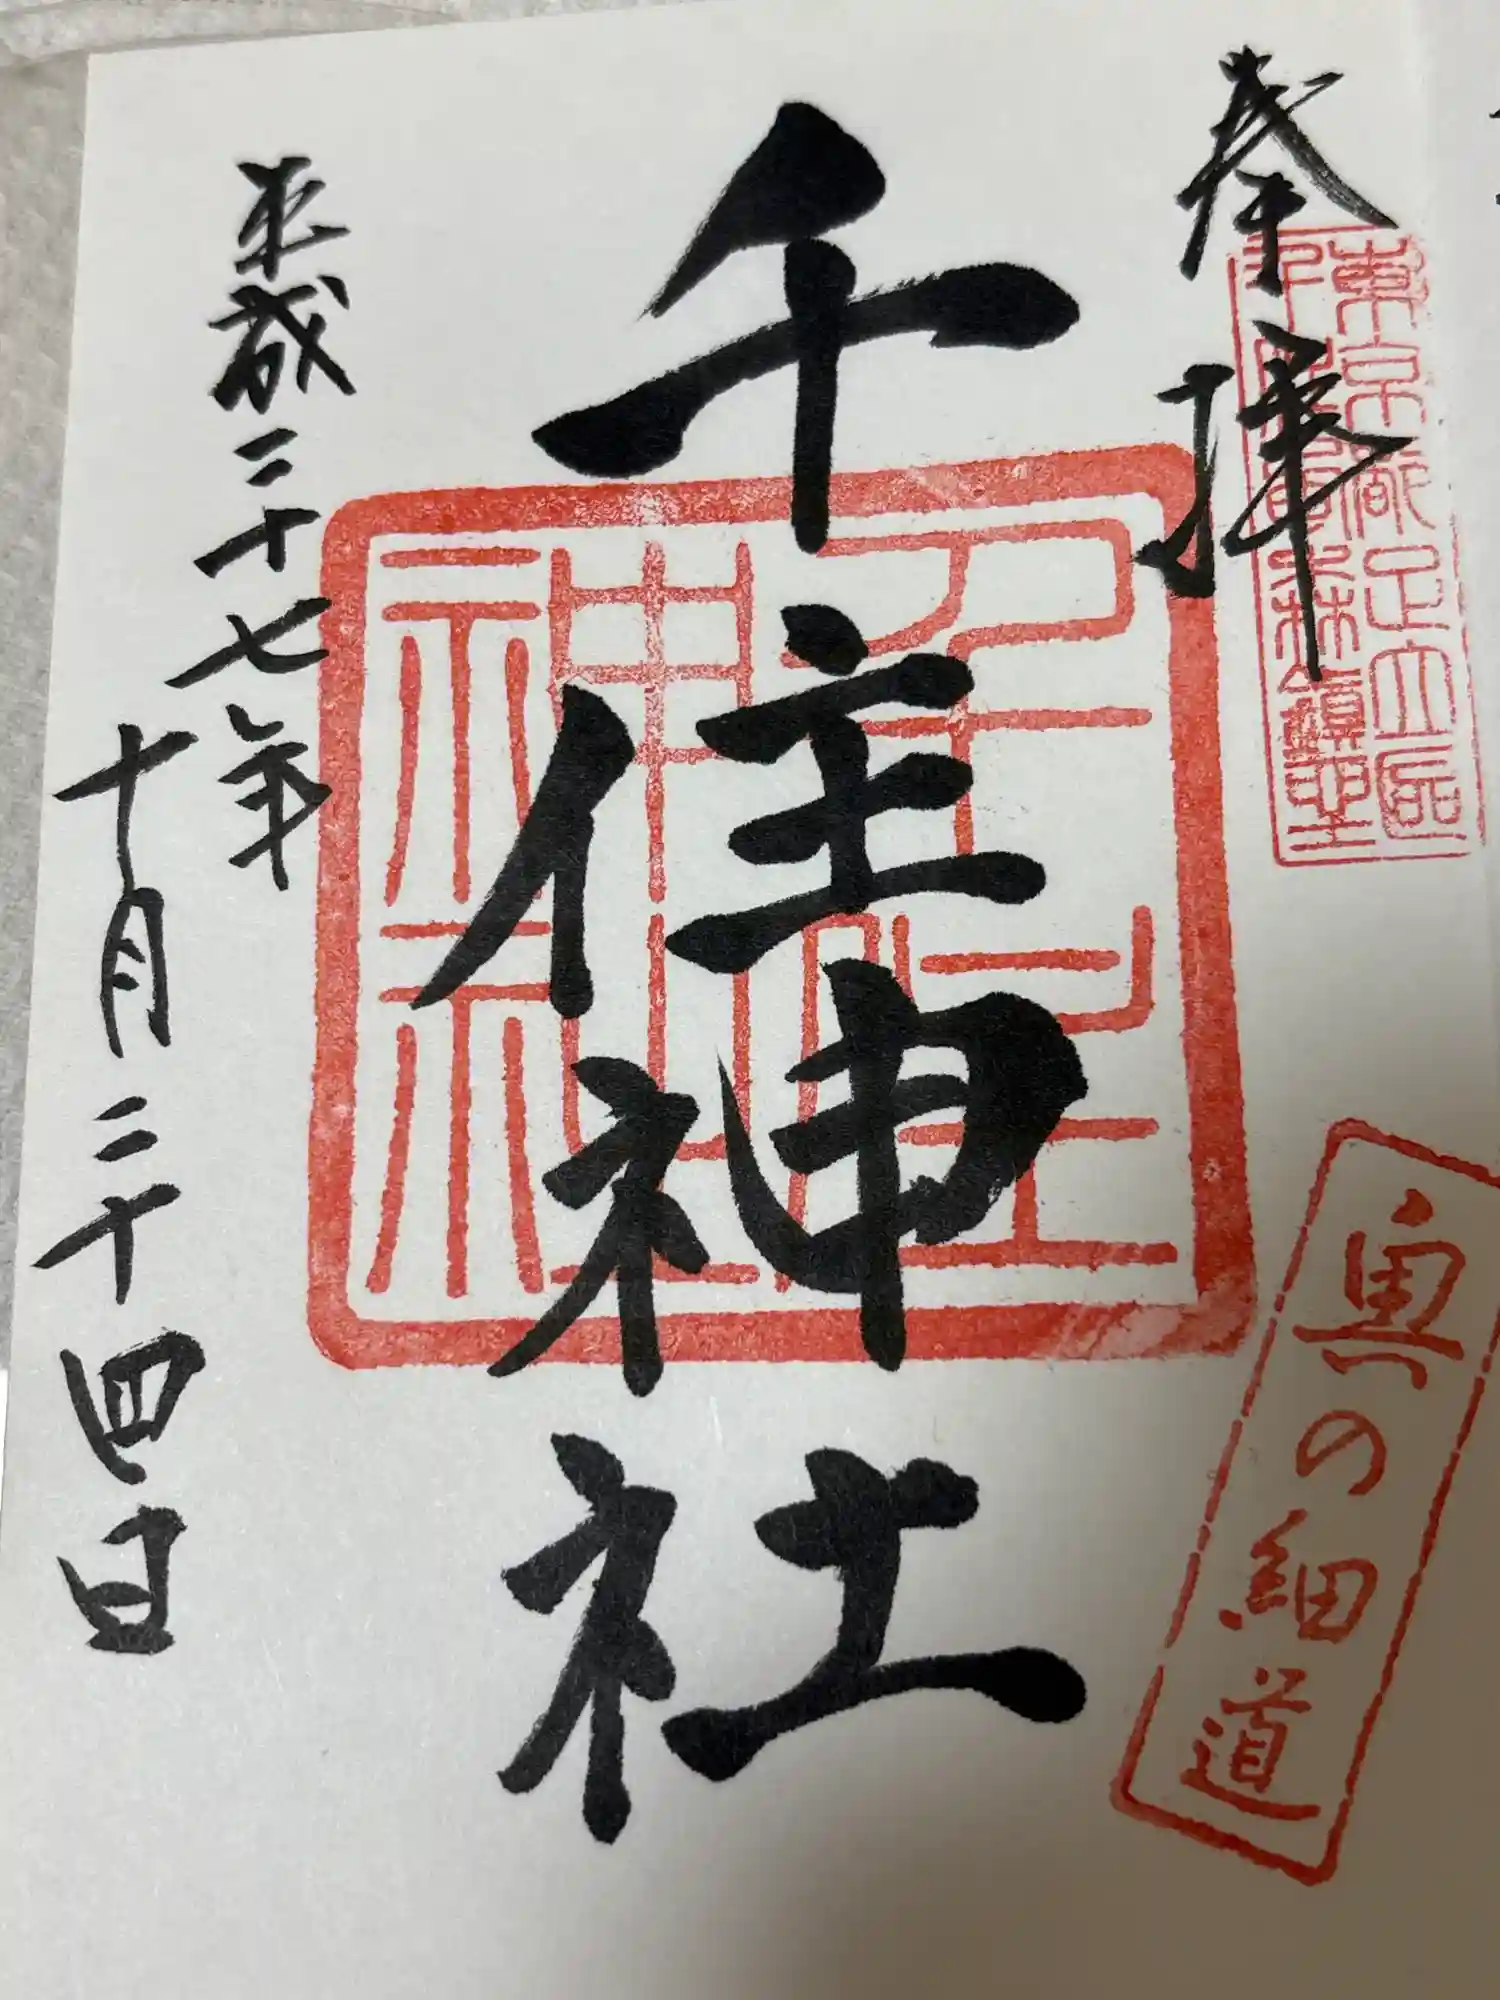 奉拝
東京都足立区
千住宮森鎮坐
千住神社
千住
神社
平成二十七年
十月二十四日
奥の細道